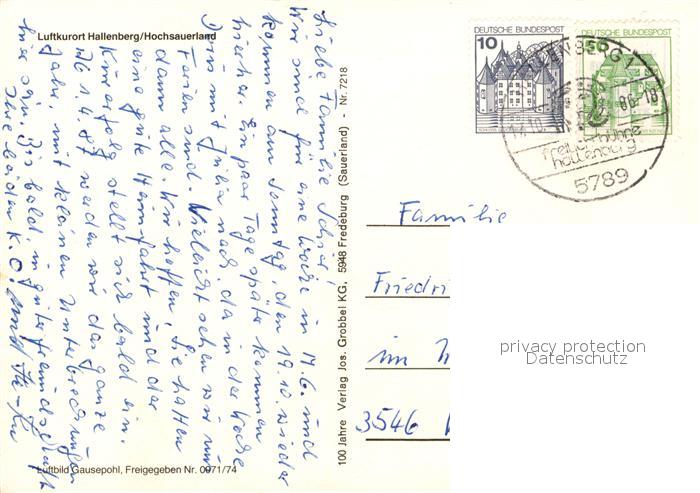 Luftkurort Hallenberg/Hochsauerland
Liebe Familie
Wir sind für eine Woche in M. G. und
kommen am Sonntag, den 19.10. wieder
hierher. Ein paar Tage später kommen
Dirk mit Julia nach, da in der Woche
Ferien sind. Vielleicht sehen wir uns
dann alle. Wir hoffen, Sie hatten
eine gute Heimfahrt und der
Kurerfolg stellt sich bald ein.
Ab 1.4.87 werden wir das ganze
Jahr, mit kleinen Unterbrechungen
hier sein. Bis bald, in guter Freundschaft
Ihre beiden K. O. und
Luftbild Gausepohl, Freigegeben Nr. 0971/74
100 Jahre Verlag Jos. Grobbel KG, 5948 Fredeburg (Sauerland) - Nr. 7218
DEUTSCHE BUNDESPOST
10
DEUTSCHE BUNDESPOST
50
HALLENBERG 1
17.10.86-18
Freilichtbühne
hallenberg
5789
Familie
Friedri
im
3546
privacy protection
Datenschutz